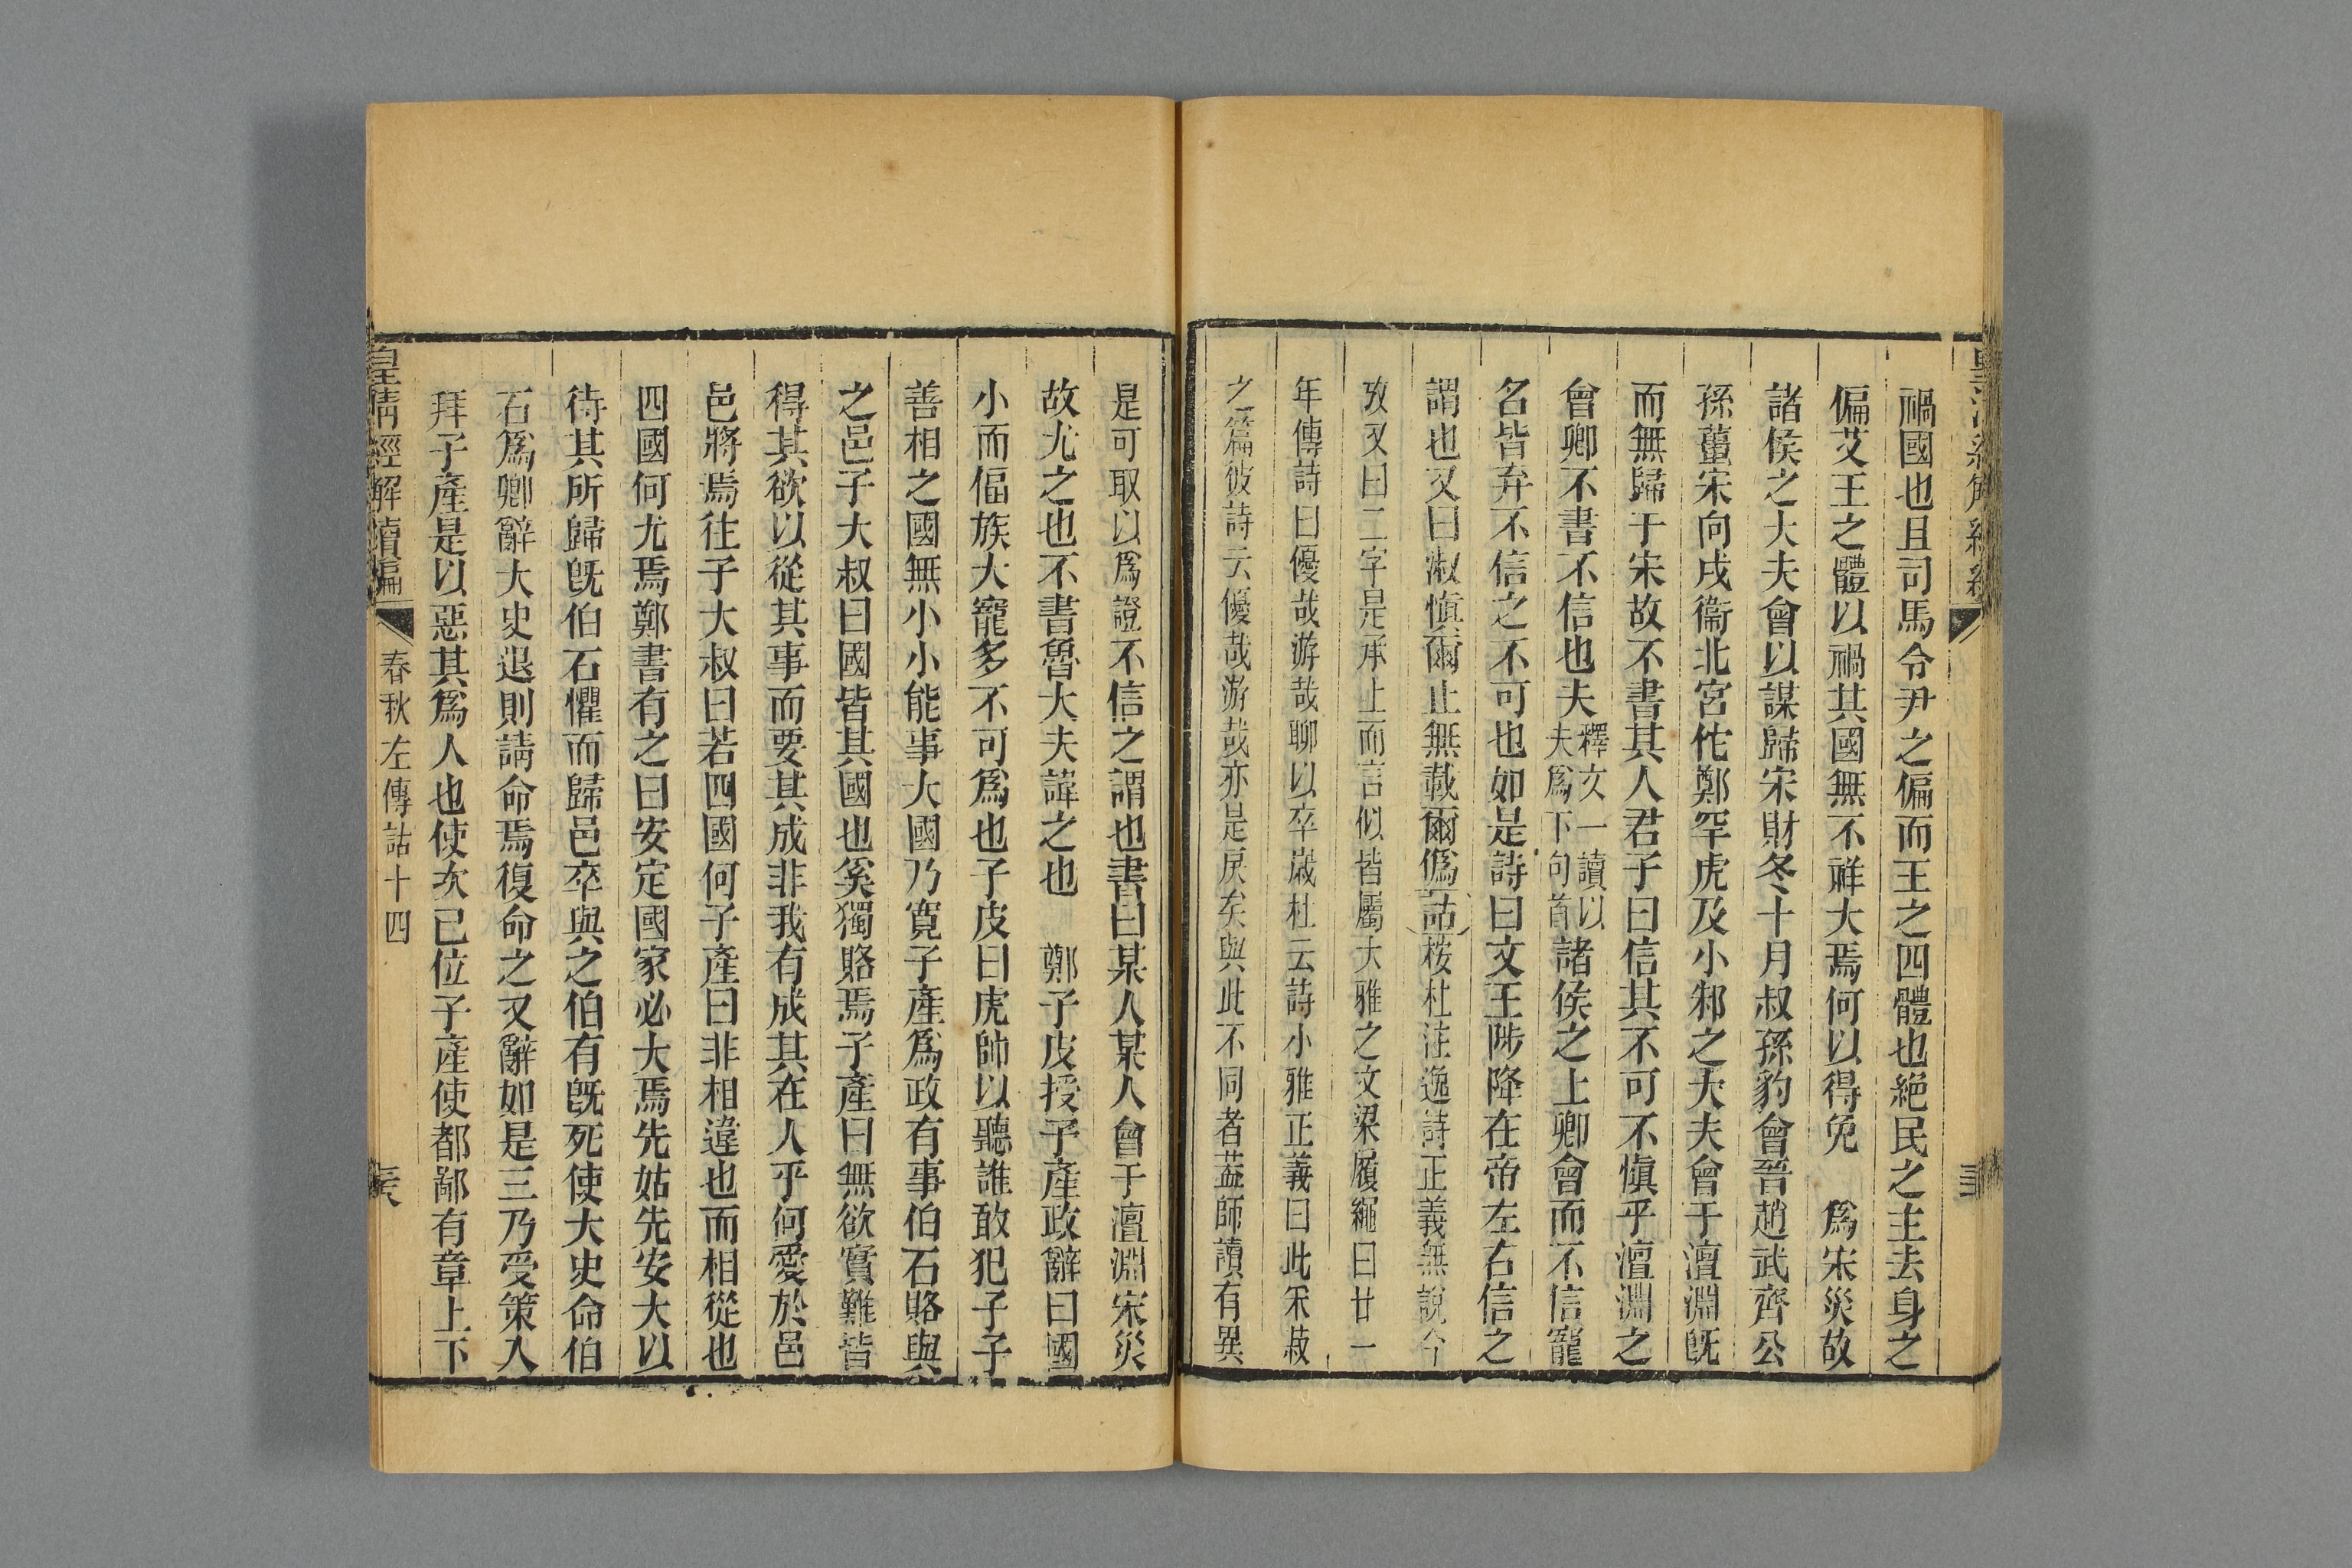 禍國也且司馬令尹之偏而王之四體也絕民之主去身之
偏艾王之體以禍其國無不祥大焉何以得免　爲宋災故
諸侯之大夫會以謀歸宋財冬十月叔孫豹會晉趙武齊公
孫蠆宋向戌衞北宮佗鄭罕虎及小邾之大夫會于澶淵旣
而無歸于宋故不書其人君子曰信其不可不愼乎澶淵之
會卿不書不信也夫釋文一讀以夫爲下句首諸侯之上卿會而不信寵
名皆弃不信之不可也如是詩曰文王陟降在帝左右信之
謂也又曰淑愼爾止無載爾僞詁桉杜注逸詩正義無說今
攷又曰二字是承上而言似皆屬大雅之文梁履繩曰廿一
年傳詩曰優哉游哉聊以卒歲杜云詩小雅正義曰此采菽
之篇彼詩云優哉游哉亦是戾矣與此不同者葢師讀有異
是可取以爲證不信之謂也書曰某人某人會于澶淵宋災
故尤之也不書魯大夫諱之也　鄭子皮授子產政辭曰國
小而偪族大寵多不可爲也子皮曰虎帥以聽誰敢犯子子
善相之國無小小能事大國乃寬子產爲政有事伯石賂與
之邑子大叔曰國皆其國也奚獨賂焉子產曰無欲實難皆
得其欲以從其事而要其成非我有成其在人乎何愛於邑
邑將焉往子大叔曰若四國何子產曰非相違也而相從也
四國何尤焉鄭書有之曰安定國家必大焉先姑先安大以
待其所歸旣伯石懼而歸邑卒與之伯有旣死使大史命伯
石爲卿辭大史退則請命焉復命之又辭如是三乃受策入
拜子產是以惡其爲人也使次已位子產使都鄙有章上下
皇清經解續編
春秋左傳詁十四